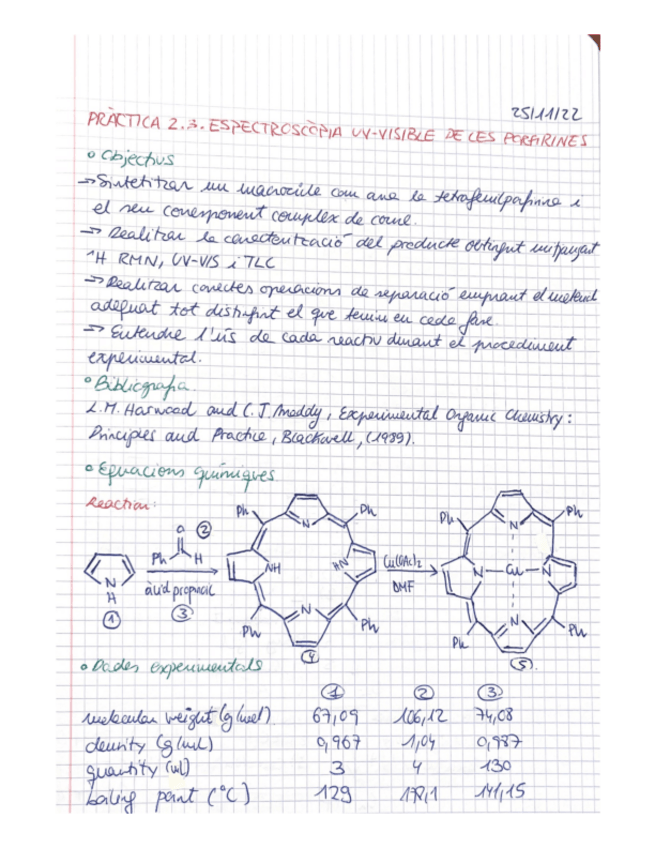 25/11/22
PRÀCTICA 2.3. ESPECTROSCÒPIA UV-VISIBLE DE LES PORFIRINES
Objectius
→ Sintetitzar un macrocicle com ara la tetrafenilporfirina i
el seu corresponent complex de coure.
→ Realitzar la caracterització del producte obtingut mitjançant
¹H RMN, UV-VIS i TLC
→ Realitzar correctes operacions de separació emprant el mètode
adequat tot distingint el que tenim en cada fase.
→ Entendre l'ús de cada reactiu durant el procediment
experimental.
Bibliografia.
L.M. Harwood and C.J. Moddy, Experimental Organic Chemistry:
Principles and Practice, Blackwell, (1989).
Equacions químiques
Reaction:
Ph Ph Ph Ph
O ②
Ph H
N N
NH HN Cu(OAc)₂ N Cu N
N H àcid propanoic DMF
① ③ N N
Ph Ph Ph Ph
④ ⑤
Dades experimentals
① ② ③
molecular weight (g/mol) 67,09 106,12 74,08
density (g/mL) 0,967 1,04 0,987
quantity (ml) 3 4 130
boiling point (°C) 129 178,1 141,15